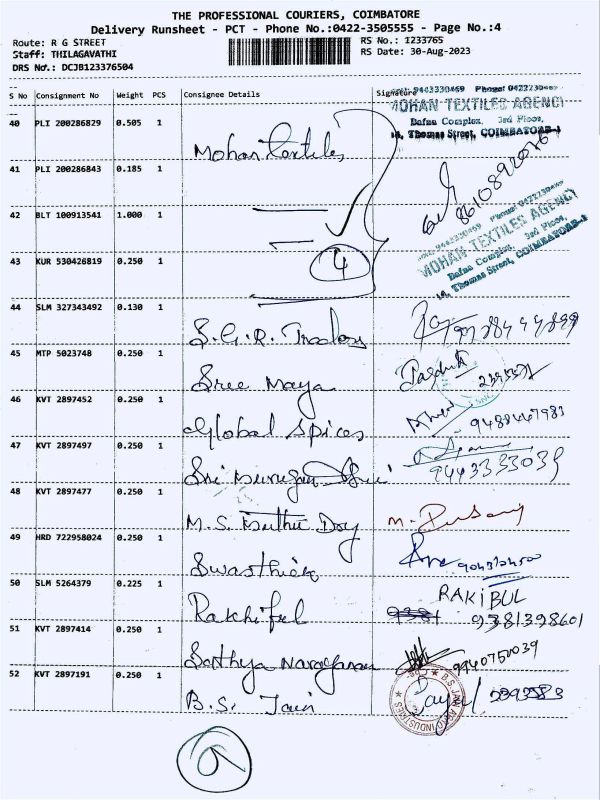 THE PROFESSIONAL COURIERS, COIMBATORE
Delivery Runsheet - PCT - Phone No.:0422-3505555 - Page No.:4
Route: R G STREET
RS No.: 1233765
Staff: THILAGAVATHI
RS Date: 30-Aug-2023
DRS No.: DCJB123376504
S No Consignment No Weight PCS Consignee Details Signature
9443330469
MOHAN TEXTILES AGENCY
Dafna Complex, 3rd Floor,
14, Thomas Street, COIMBATORE-1
40 PLI 200286829 0.505 1 Mohan Textiles
41 PLI 200286843 0.185 1
8610892076
42 BLT 100913541 1.000 1
MOHAN TEXTILES AGENCY
Dafna Complex, 3rd Floor,
14, Thomas Street, COIMBATORE-1
43 KUR 530426819 0.250 1 4
44 SLM 327343492 0.130 1 S.G.R. Traders
45 MTP 5023748 0.250 1 Sree Maya
46 KVT 2897452 0.250 1 Global Spices
47 KVT 2897497 0.250 1 Sri Murugan
9443333039
48 KVT 2897477 0.250 1 M.S. M.
49 HRD 722958024 0.250 1 Swasthick
50 SLM 5264379 0.225 1 RAKIBUL
9381398601
51 KVT 2897414 0.250 1 Sathya Narayanan 9940750039
52 KVT 2897191 0.250 1 B.S. Jain